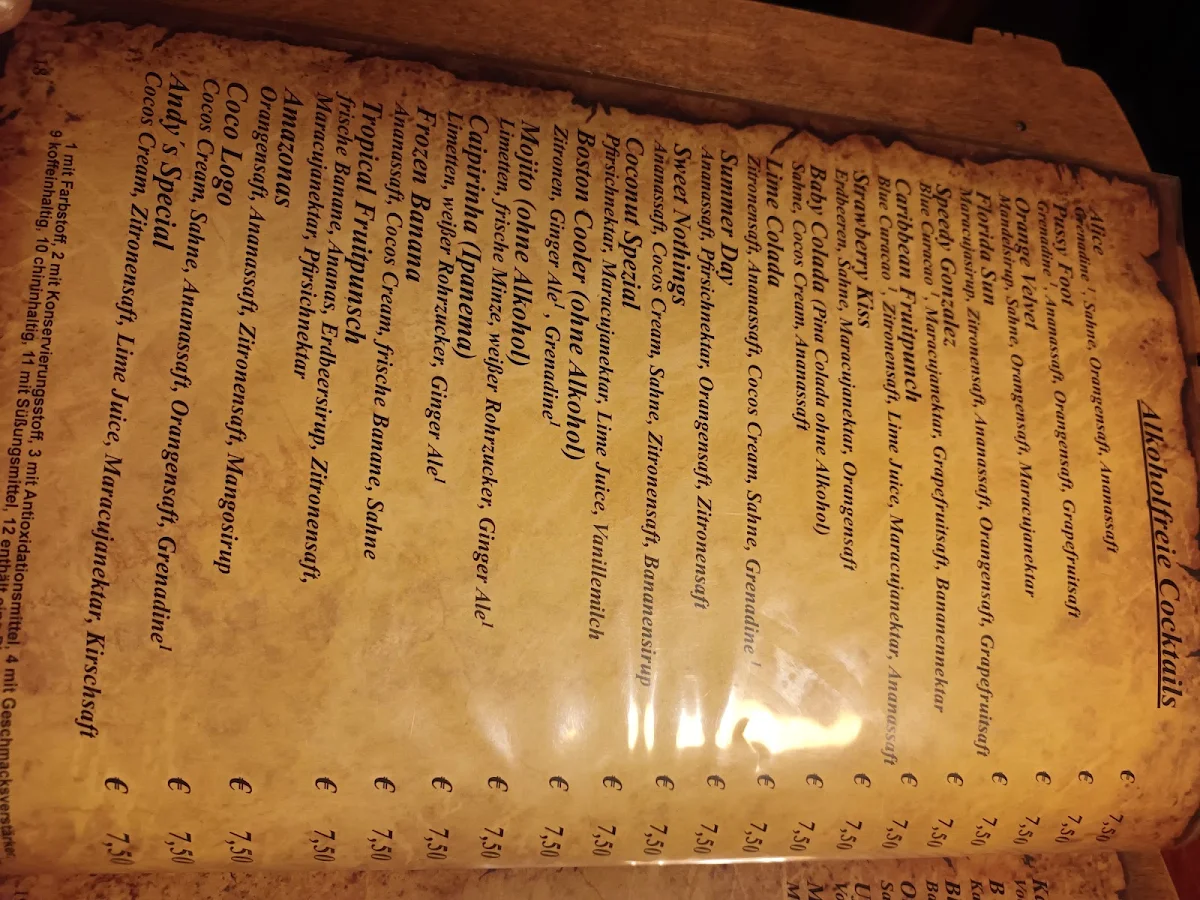 Alkoholfreie Cocktails
Alice € 7,50
Grenadine ¹, Sahne, Orangensaft, Ananassaft
Pussy Foot € 7,50
Grenadine ¹, Ananassaft, Orangensaft, Grapefruitsaft
Orange Velvet € 7,50
Mandelsirup, Sahne, Orangensaft, Maracujanektar
Florida Sun € 7,50
Maracujasirup, Zitronensaft, Ananassaft, Orangensaft, Grapefruitsaft
Speedy Gonzalez € 7,50
Blue Curacao ¹, Maracujanektar, Grapefruitsaft, Bananennektar
Caribbean Fruitpunch € 7,50
Blue Curacao ¹, Zitronensaft, Lime Juice, Maracujanektar, Ananassaft
Strawberry Kiss € 7,50
Erdbeeren, Sahne, Maracujanektar, Orangensaft
Baby Colada (Pina Colada ohne Alkohol) € 7,50
Sahne, Cocos Cream, Ananassaft
Lime Colada € 7,50
Zitronensaft, Ananassaft, Cocos Cream, Sahne, Grenadine ¹
Summer Day € 7,50
Ananassaft, Pfirsichnektar, Orangensaft, Zitronensaft
Sweet Nothings € 7,50
Ananassaft, Cocos Cream, Sahne, Zitronensaft, Bananensirup
Coconut Spezial € 7,50
Pfirsichnektar, Maracujanektar, Lime Juice, Vanillemilch
Boston Cooler (ohne Alkohol) € 7,50
Zitronen, Ginger Ale¹, Grenadine¹
Mojito (ohne Alkohol) € 7,50
Limetten, frische Minze, weißer Rohrzucker, Ginger Ale¹
Caipirinha (Ipanema) € 7,50
Limetten, weißer Rohrzucker, Ginger Ale¹
Frozen Banana € 7,50
Ananassaft, Cocos Cream, frische Banane, Sahne
Tropical Fruitpunsch € 7,50
frische Banane, Ananas, Erdbeersirup, Zitronensaft,
Maracujanektar, Pfirsichnektar
Amazonas € 7,50
Orangensaft, Ananassaft, Zitronensaft, Mangosirup
Coco Logo € 7,50
Cocos Cream, Sahne, Ananassaft, Orangensaft, Grenadine¹
Andy´s Special € 7,50
Cocos Cream, Zitronensaft, Lime Juice, Maracujanektar, Kirschsaft
1 mit Farbstoff, 2 mit Konservierungsstoff, 3 mit Antioxidationsmittel, 4 mit Geschmacksverstärker,
9 koffeinhaltig, 10 chininhaltig, 11 mit Süßungsmittel, 12 enthält
18